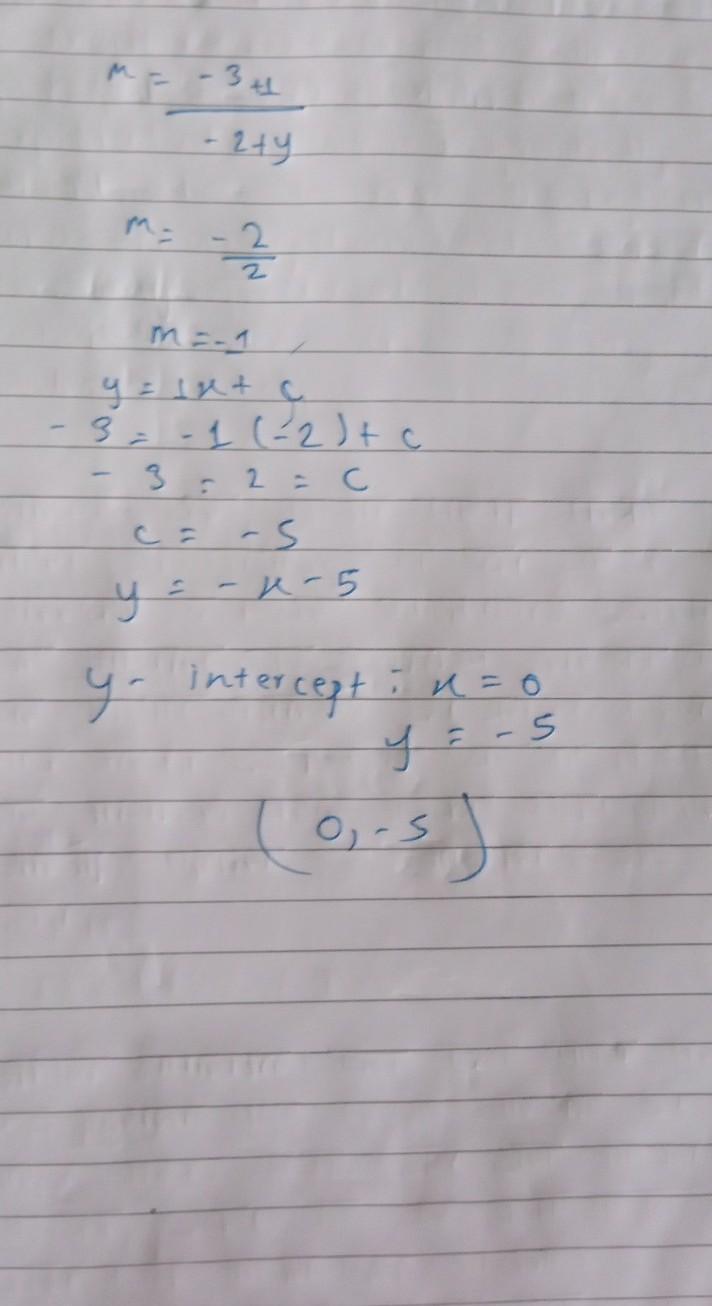 m = -3+1
-2+y
m = -2
2
m = -1
y = 1x + c
-3 = -1(-2) + c
-3 - 2 = c
c = -5
y = -x - 5
y- intercept : x = 0
y = -5
(0, -5)